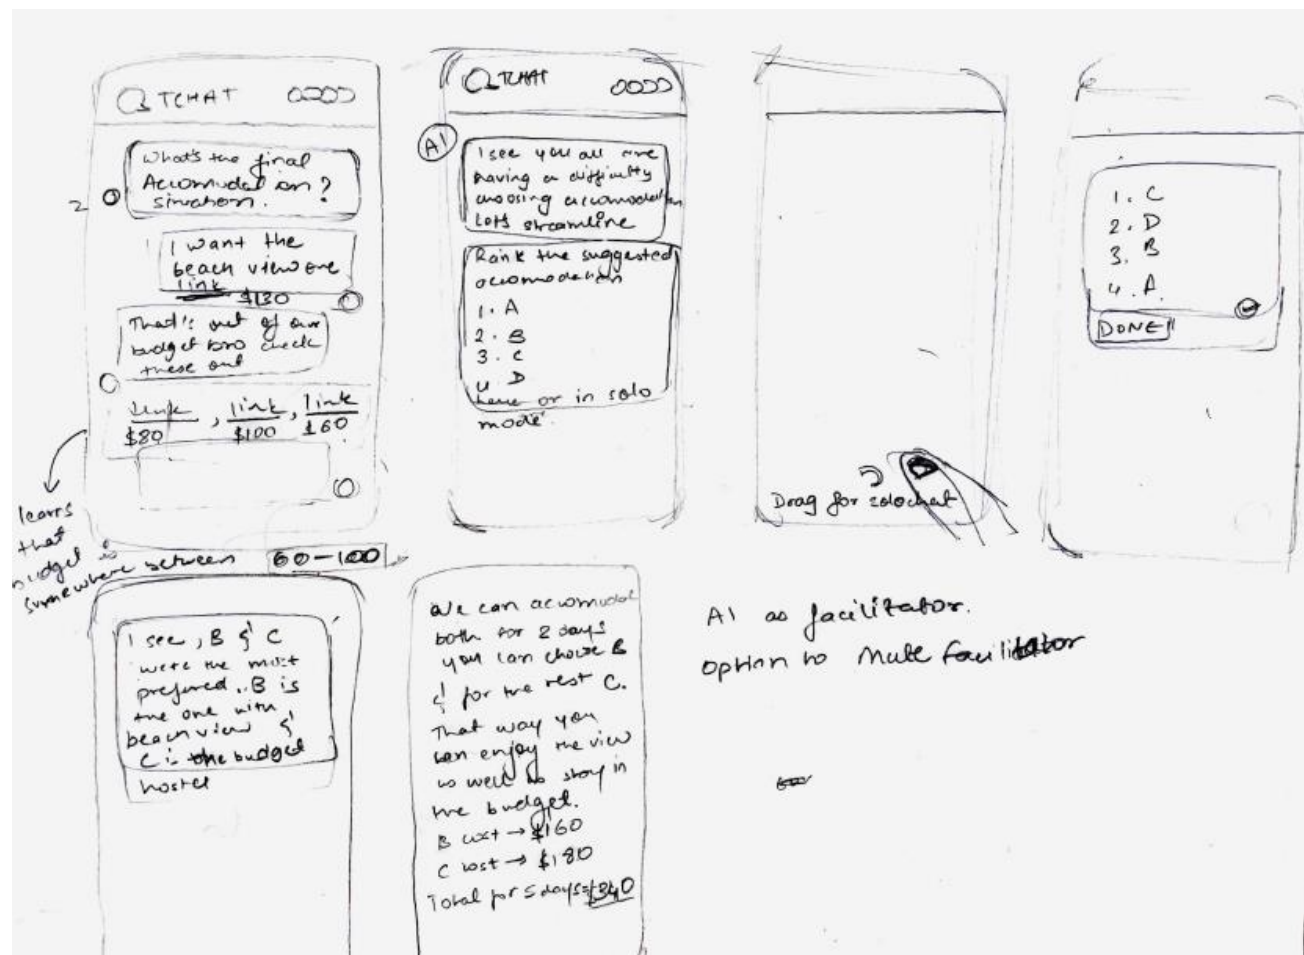 TCHAT
2
What's the final
Accomudation ?
situation.
I want the
beach view one
link
$130
That's out of our
budget bro check
these out
link , link , link
$80 $100 $60
learns
that
budget is
somewhere between 60-100
TCHAT
AI
I see you all are
having a difficulty
choosing accomodation
Lets streamline
Rank the suggested
accomodation
1. A
2. B
3. C
4. D
here or in solo
mode.
Drag for solochat
1. C
2. D
3. B
4. A.
DONE
I see, B & C
were the most
preferred.. B is
the one with
beach view &
C is the budget
hostel
We can accomudate
both for 2 days
you can choose B
& for the rest C.
That way you
can enjoy the view
as well as stay in
the budget.
B cost → $160
C cost → $180
Total for 5 days = $340
AI as facilitator.
option to Mute facilitator